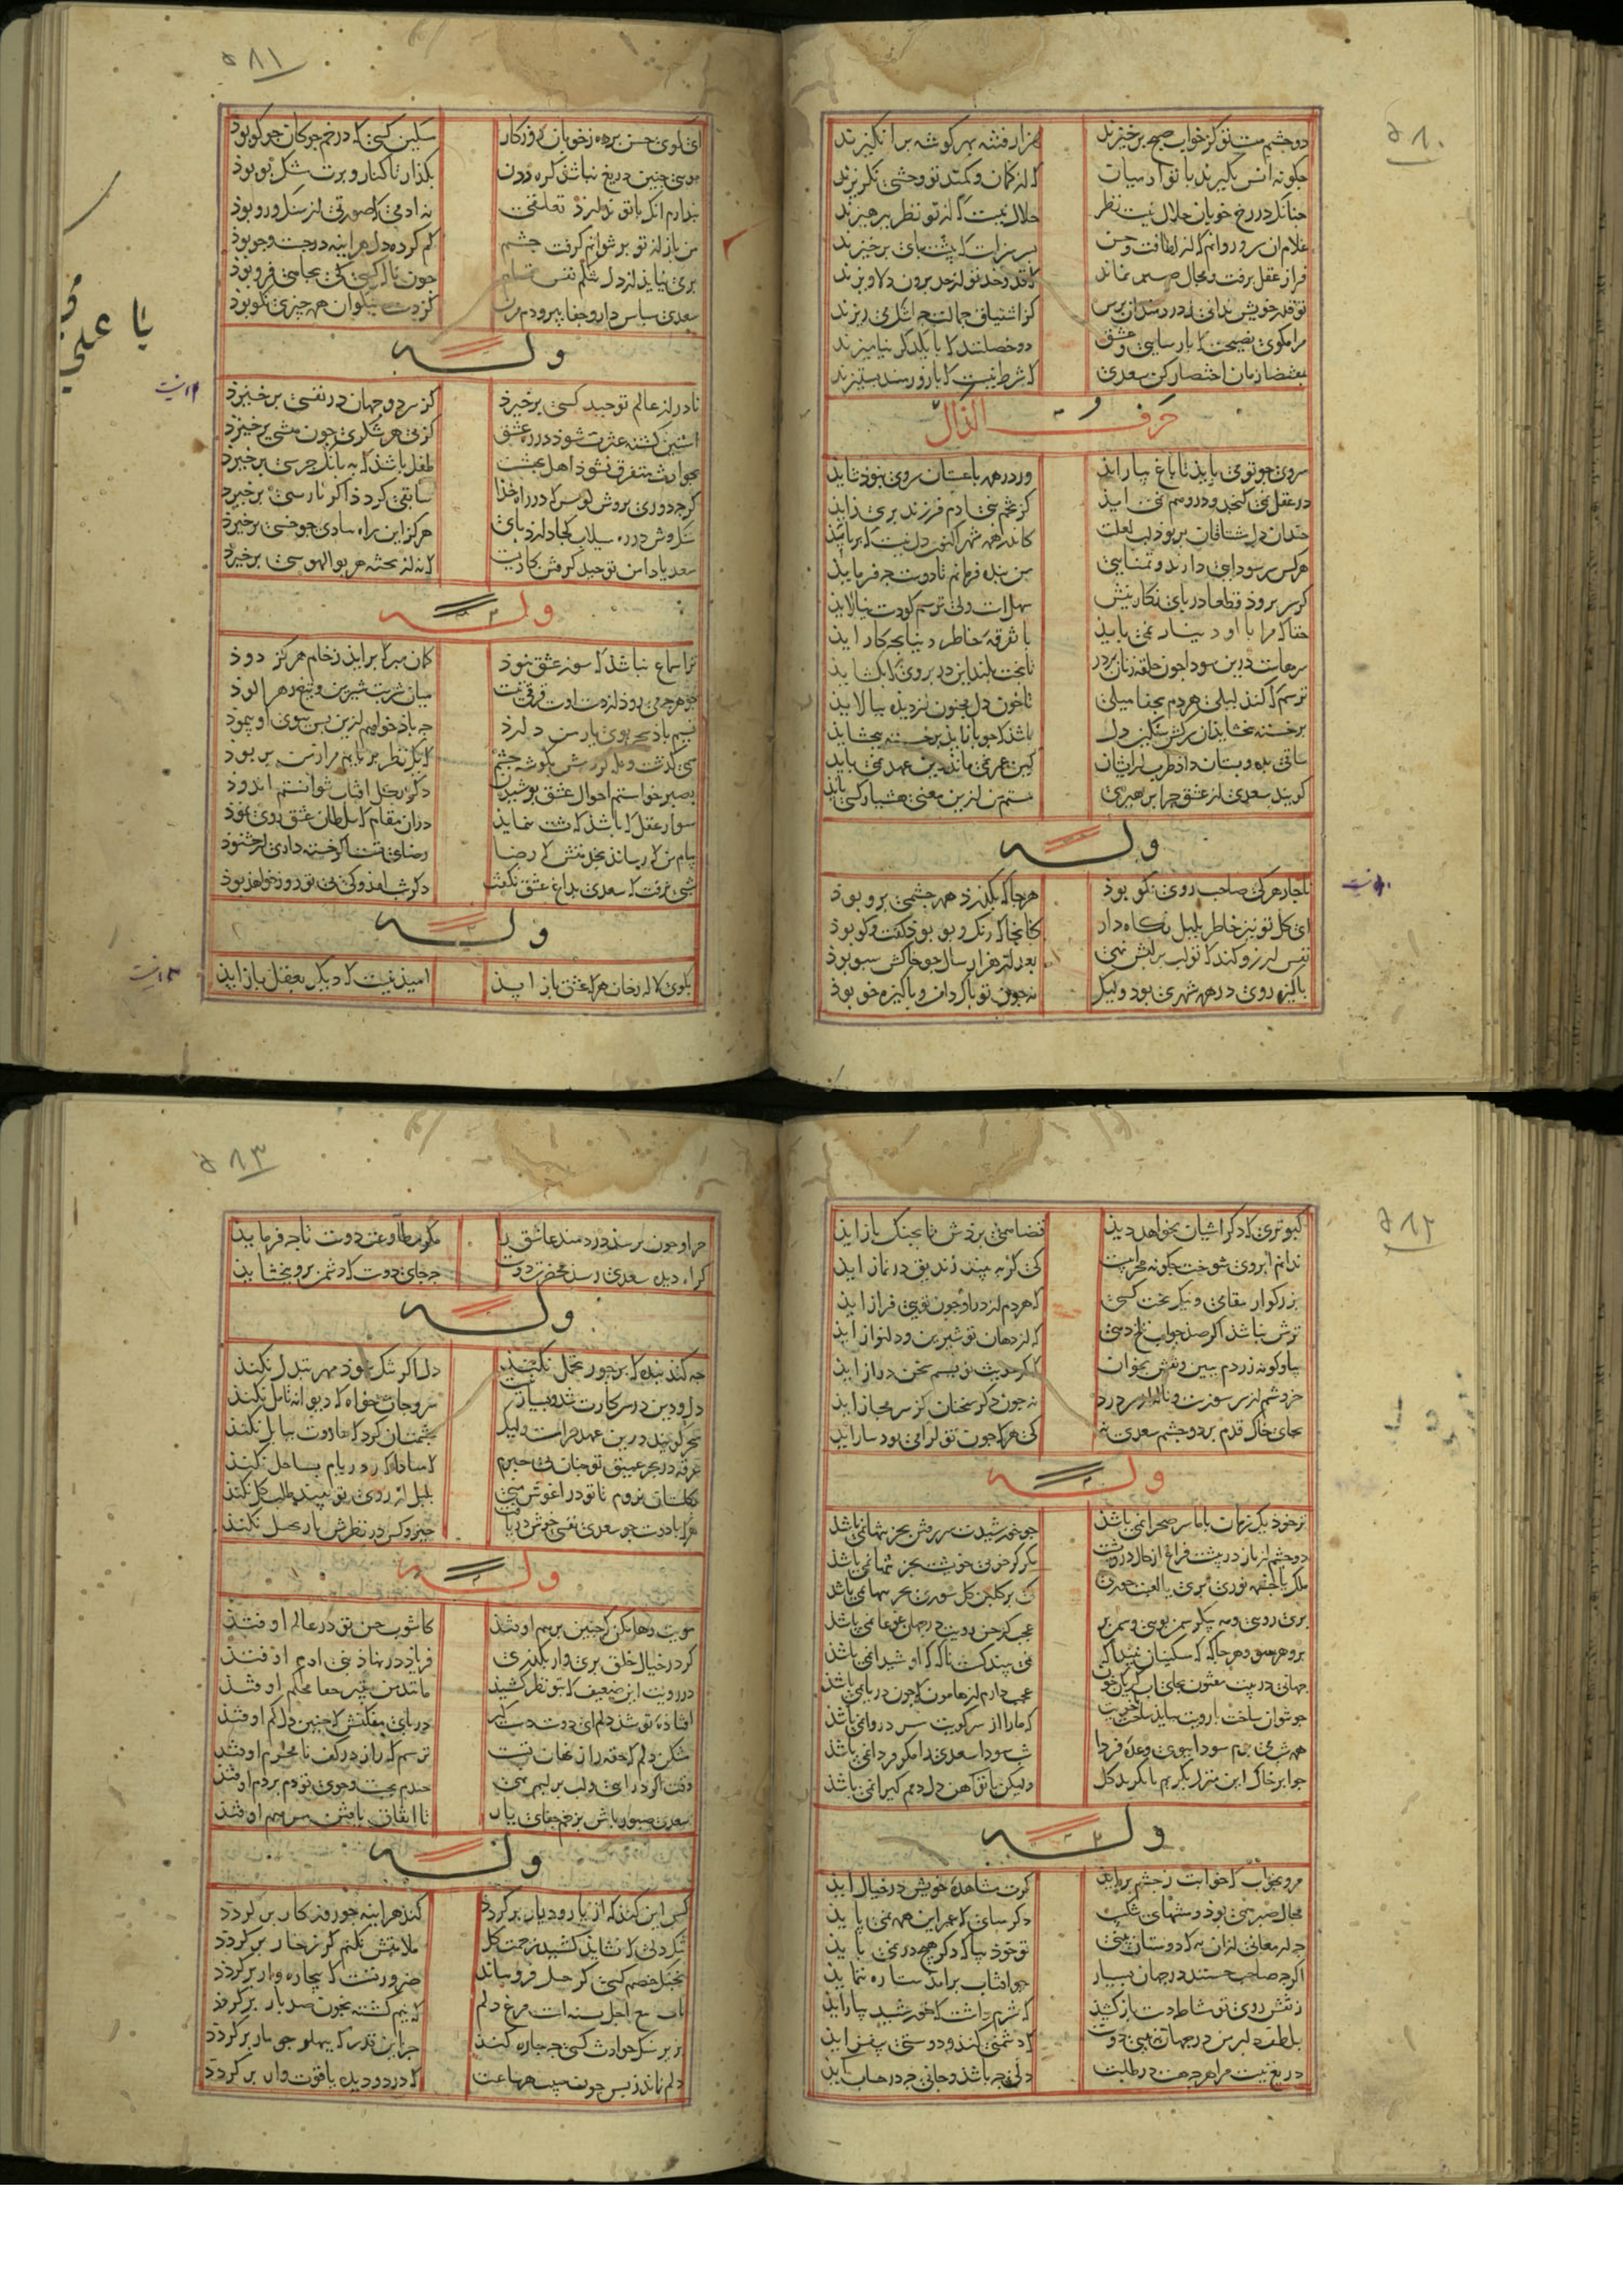 ۵۱۰
دو چشم مست تو کز خواب صبح برخیزند هزار فتنه بهر کوشه برانکیزند
چکونه انس نکیرند با تو ادمیان که از کمان و کمند تو وحشی نکریزند
چنانکه در رخ خوبان حلال نیست نظر حلال نیست که از تو نظر بپرهیزند
غلام ان سر و روانم که از لطافت و حسن
فراز عقل برفت و مجال صبر نماند که قد و خد تو از حد برون دلاویزند
تو قدر خویش ندانی ز دردمندان پرس کز اشتیاق جمالت چه اشک می ریزند
مرا مکوی نصیحت که پارسایی و عشق دو خصلتند که با یکدکر نیامیزند
سعدی که شرط نیست که با زورمند بستیزند
حرف الذال
سروی چو تو می باید تا باغ بیاراید ور در همه باغستان سروی نبود شاید
در عقل نمی کنجد در وهم نمی اید کز تخم بنی ادم فرزند پری زاید
چندان دل مشتاقان بربود لب لعلت کاندر همه شهر اکنون دل نیست که برباید
هر کس سر سودایی دارند و تمنایی من بنده فرمانم تا دوست چه فرماید
کر سر برود قطعا در پای نکارینش سهلست ولی ترسم کو دست نیالاید
حقا که مرا با او دنیا نمی باید با تفرقه خاطر دنیا بچه کار اید
سرهاست درین سودا چون حلقه زنان بر در تا بخت بلند این در بر روی که بکشاید
ترسم که کند لیلی هر دم بجفا میلی تا خون دل مجنون از دیده بپالاید
بر خسته نبخشاید ان سرکش سنکین دل باشد که چو بازاید بر خسته ببخشاید
ساقی بده و بستان داد طرب از ایشان کین عمر نمی ماند وین عهد نمی پاید
کویند سعدی از عشق چرا پرهیزی مستم من ازین معنی هشیار کسی باید
وله
ناچار هر که صاحب روی نکو بود هرجا که بکذرد همه چشمی برو بود
ای کل تو نیز خاطر بلبل نکاه دار کانجا که رنک و بوی بود کفت و کو بود
نفس ارزو کند که تو لب بر لبش نهی بعد از هزار سال چو خاکش سبو بود
پاکیزه روی در همه شهری بود ولیک نه چون تو پاک دامن و پاکیزه خو بود
۵۱۱
ای کوی حسن برده ز خوبان روزکار مسکین کسی که در خم چوکان چو کو بود
مویی چنین دریغ نباشد کره زدن بکذار تا کنار و برت مشک بو بود
پندارم انکه با تو ندارد تعلقی نه ادمی که صورتی از سنک و رو بود
من باز از تو بر نتوانم کرفت چشم کم کرده دل هراینه در جست و جو بود
بر می نیاید از دل تنکم نفس تمام چون ناله کسی که بچاهی فرو بود
سعدی سپاس دار و جفا بین و دم مزن کز دست نیکوان همه چیزی نکو بود
وله
یا علی
نادر از عالم توحید کسی برخیزد کز سر دو جهان در نفسی برخیزد
استین کشته عزت شود در ره عشق کز پی هر شکری چون مکسی برخیزد
بحوادث متفرق نشود اهل بهشت طفل باشد که به بانک جرسی برخیزد
سنک وش در ره سیلاب کجا دارد پای هرکز این راه بپایان چو خسی برخیزد
سعدیا دامن توحید کرفتن کاریست که نه از پنجه هر بوالهوسی برخیزد
وله
ترا سماع نباشد که سوز عشق نبود کمان مبر که براید ز خام هرکز دود
چو هرچه می رود از دست اوست فرقی نیست میان شربت شیرین و تلخ زهر الود
نسیم باد صبا بوی یار من دارد چو باد خواهم ازین پس ببوی او پیمود
همی کذشت و نظر کردمش بکوشه چشم که یک نظر بربایم مرا ز من بربود
بصبر خواستم احوال عشق پوشیدن دکر بکل افتاب نتوانستم اندود
سوار عقل که باشد که پشت ننماید دران مقام که سلطان عشق روی نمود
پیام من که رساند بخدمتش که رضا رضای تست اکر خسته داری ار خشنود
شبی نرفت که سعدی بداغ عشق نکفت دکر شب امد و کی بی تو روز خواهد بود
وله
بکوی لاله رخان هرکه عشق باز اید امید نیست که دیکر بعقل باز اید
۵۱۲
کبوتری که دکر اشیان نخواهد دید قضا همی بردش تا بچنک باز اید
ندانم ابروی شوخت چکونه محرابیست کی کر ببیند زندیق در نماز اید
بزرکوار مقامی و نیک بخت کسی که هر دم از در او چون تویی فراز اید
ترش نباشد اکر صد جواب تلخ دهی که از دهان تو شیرین و دلنواز اید
بیا و کونه زردم ببین و نقش بخوان که کر حدیث نویسم سخن دراز اید
خروشم از سر سوزست و ناله از سر درد نه چون دکر سخنان کز سر مجاز اید
بجای خاک قدم بر دو چشم سعدی نه کی هرکه چون تو کرامی بود بناز اید
وله
ترا خود یک زمان با ما سر صحرا نمی باشد چو خورشیدت سر رفتن بجز تنها نمی باشد
دو چشم از ناز در پیشت فراغ از حال درویشت مکر کز خوبی خویشت بجز تنها نمی باشد
ملک یا چشمه نوری پری یا لعبت حوری که بر کلبن کل سوری چنین زیبا نمی باشد
پری رویی و مه پیکر سمن بویی و سیمین بر عجب کز حسن رویت در جهان غوغا نمی باشد
جهانی در پیت مفتون بجای اب کریان خون عجب دارم ز هامون که چون دریا نمی باشد
همه شب می پزم سودا ببوی وعده فردا شب سودای سعدی را مکر فردا نمی باشد
چرا بر خاک این منزل نکریم تا بکرید کل ولیکن با تو اهن دل دمم کیرا نمی باشد
وله
مرو بخواب که خوابت ز چشم برباید کرت مشاهده خویش در خیال اید
مجال صبر همین بود و منتهای شکیب دکر مپای که عمر این همه نمی پاید
چه ارمغانی ازان به که دوستان بینی تو خود بیا که دکر هیچ در نمی باید
اکرچه صاحب حسنند در جهان بسیار چو افتاب براید ستاره ننماید
ز نقش روی تو مشاطه دست باز کشید که شرم داشت که خورشید را بیاراید
بلطف دلبر من در جهان نبینی دوست که دشمنی کند و دوستی بیفزاید
دریغ نیست مرا هرچه هست در طلبت دلی چه باشد و جانی چه در حساب اید
۵۱۳
چرا و چون نرسد دردمند عاشق را مکر مطاوعت دوست تا چه فرماید
کر اه دل سعدی رسد بحضرت دوست چه جای دوست که دشمن برو ببخشاید
وله
چه کند بنده که بر جور تحمل نکند دل اکر تنک شود مهر تبدل نکند
دل و دین در سر کارت شد و بسیاری نیست سر و جان خواه که دیوانه تامل نکند
سحر کویند درین عهد حرامست ولیک چشمت ان کرد که هاروت ببابل نکند
غرقه در بحر عمیق تو چنان بی خبرم که مبادا که ز دریام بساحل نکند
بکلستان نروم تا تو در اغوش منی بلبل ار روی تو بیند طلب کل نکند
هرکه با دوست چو سعدی نفسی خوش دریافت چیز و کس در نظرش باز تخیل نکند
وله
مویت رها مکن که چنین برهم اوفتد کاشوب حسن تو در عالم اوفتد
کر در خیال خلق پری وار بکذری فریاد در نهاد بنی ادم اوفتد
افتاده تو شد دلم ای دوست دست کیر در پای مفکنش که چنین دل کم اوفتد
در رویت این ضعیف که تیغ نظر کشید مانند من بتیر جفا محکم اوفتد
مشکن دلم که حقه راز نهان تست ترسم که راز در کف نامحرم اوفتد
وقتست اکر درایی و لب بر لبم نهی چندم بجست و جوی تو دم بر دم اوفتد
سعدی صبور باش برین زخم جفای یار تا اتفاق یافتن مرهم اوفتد
وله
کس این کند که از یار و دیار برکردد کند هراینه چون روزکار برکردد
تنک دلی که نشاید کشید زحمت کل ملامتش نکنم کر ز خار برکردد
بجنک خصم کسی کز حیل فرو ماند ضرورتست که بیچاره وار برکردد
بزیر سنک حوادث کسی چه چاره کند جز این قدر که بپهلو چو مار برکردد
دلم نماند ز بس خون هر ساعت که در دو دیده یاقوت وار برکردد